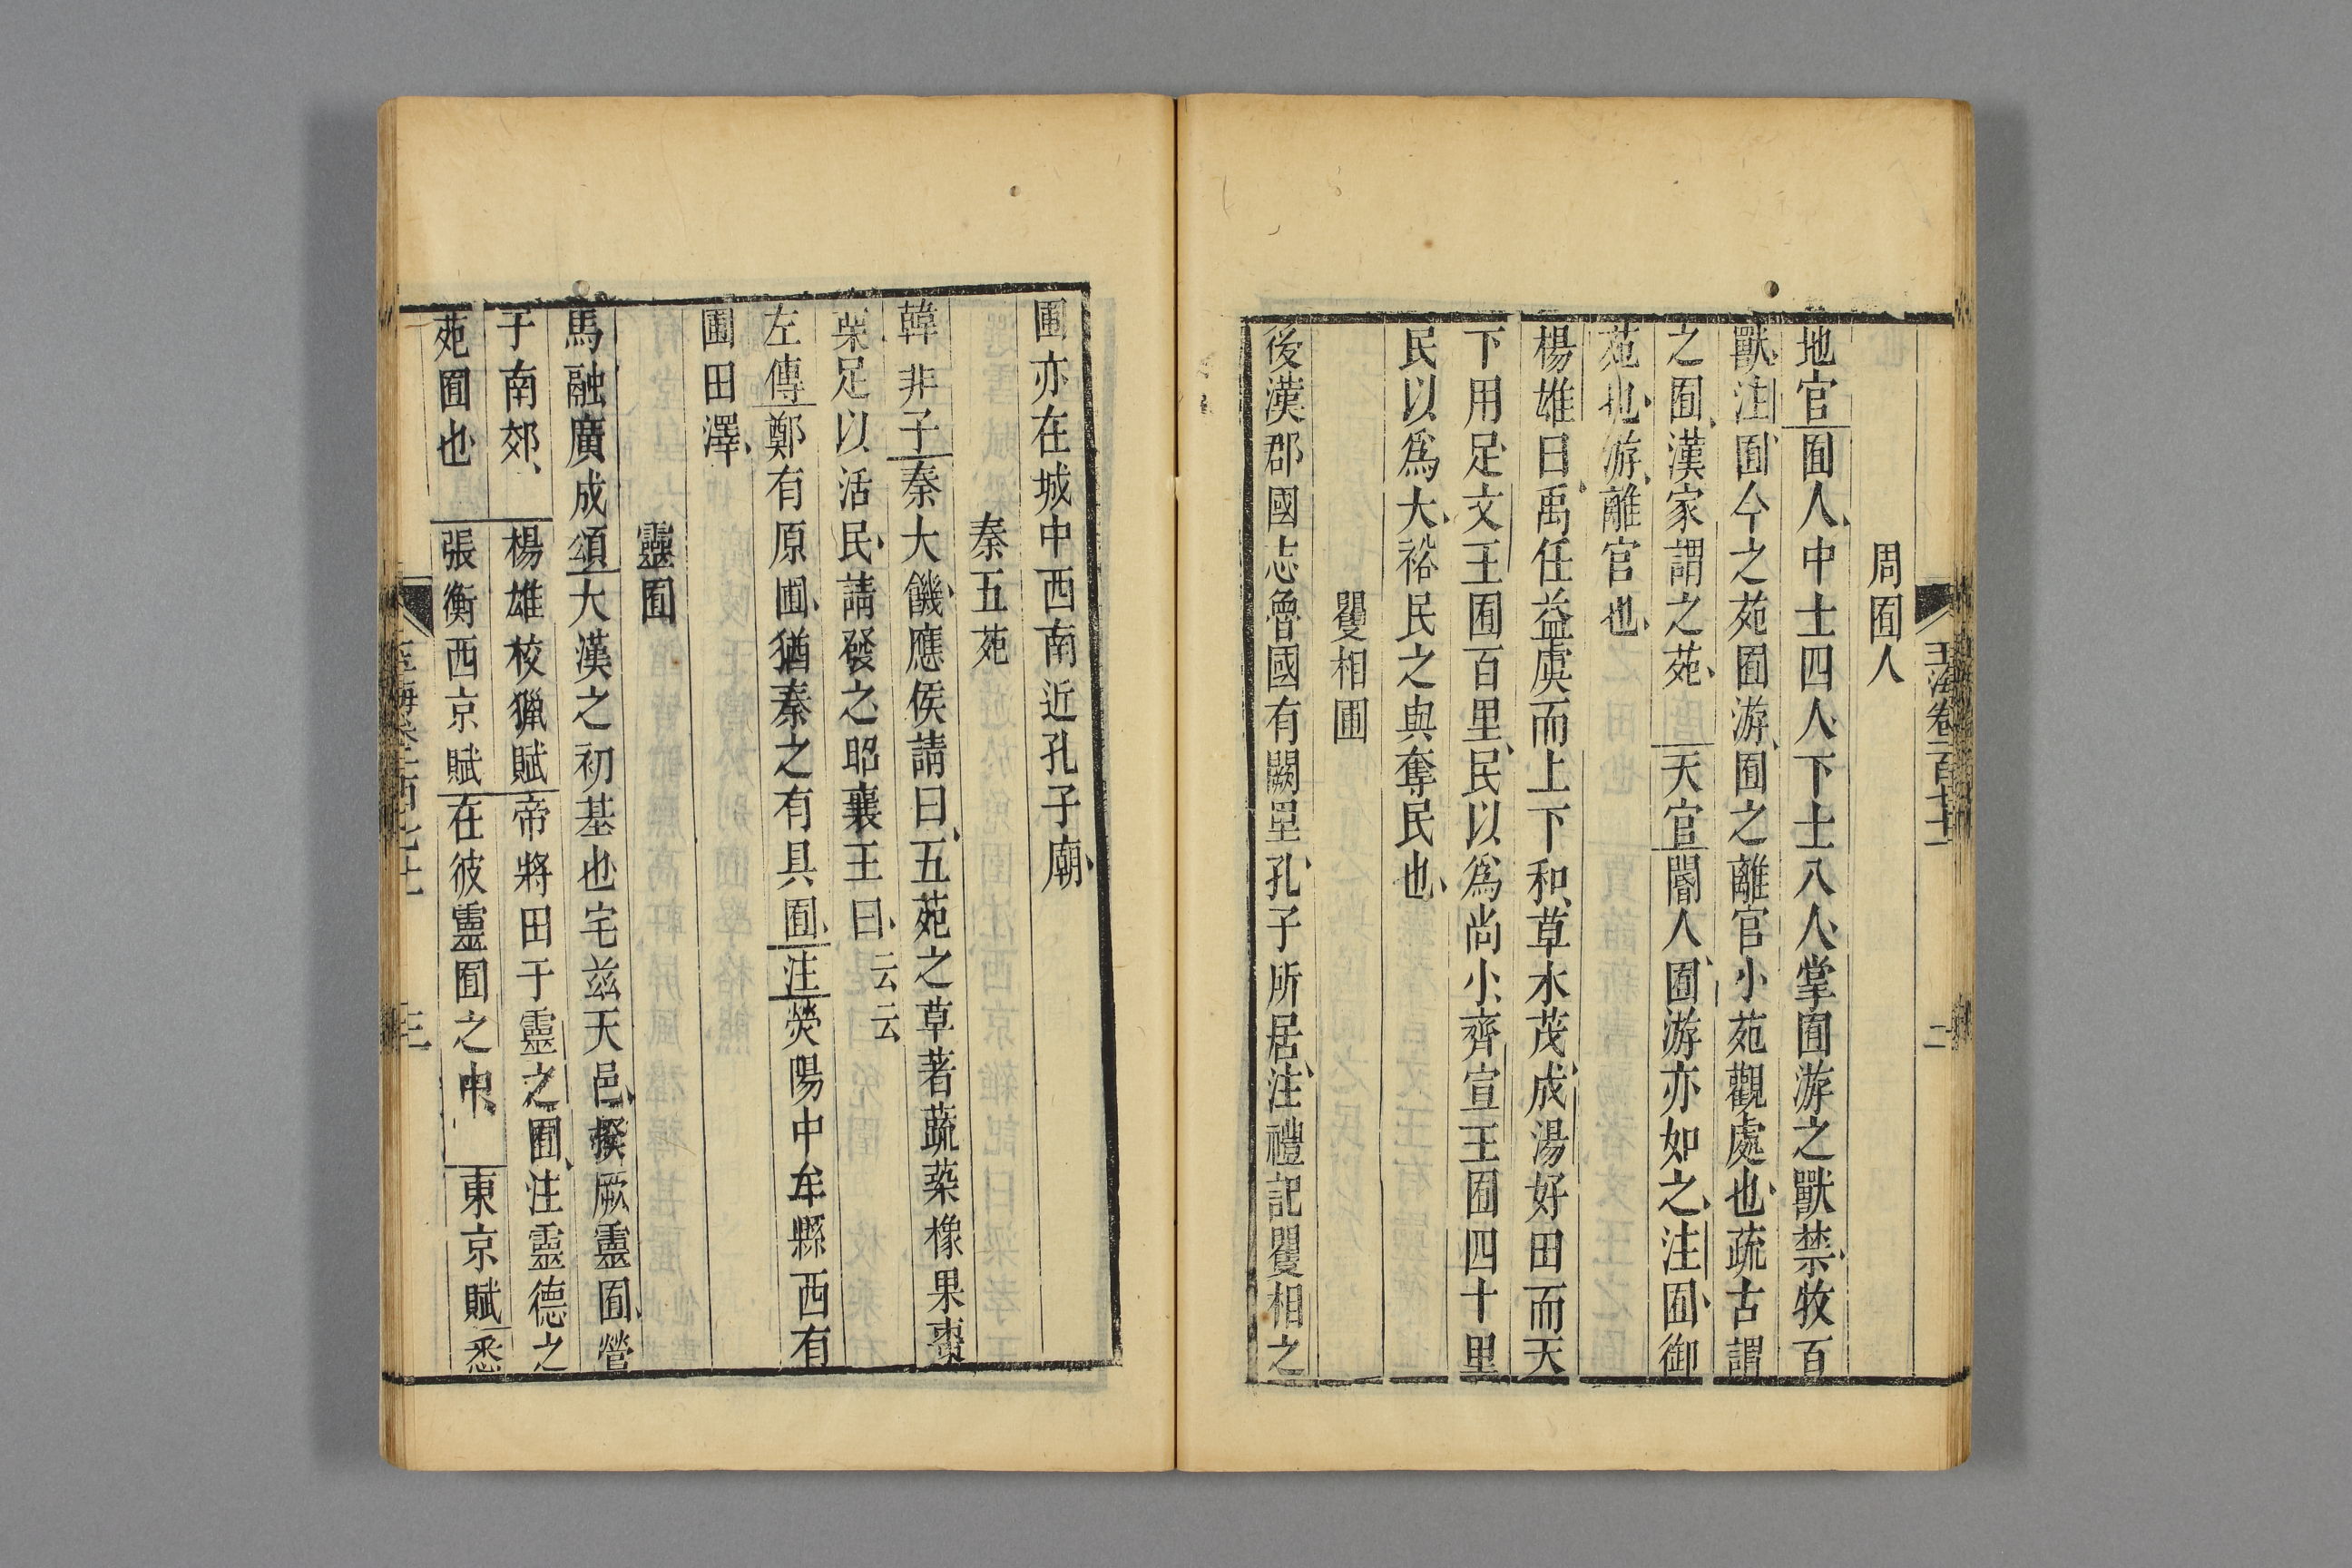 玉海卷一百七十一
二
周囿人
地官囿人中士四人下士八人掌囿游之獸禁牧百
獸注囿今之苑囿游囿之離宮小苑觀處也疏古謂
之囿漢家謂之苑天官閽人囿游亦如之注囿御
苑也游離宮也
楊雄曰禹任益虞而上下和草木茂成湯好田而天
下用足文王囿百里民以爲尚小齊宣王囿四十里
民以爲大裕民之與奪民也
矍相圃
後漢郡國志魯國有闕里孔子所居注禮記矍相之
圃亦在城中西南近孔子廟
秦五苑
韓非子秦大饑應侯請曰五苑之草著蔬菜橡果棗
栗足以活民請發之昭襄王曰云云
左傳鄭有原圃猶秦之有具囿注熒陽中牟縣西有
圃田澤
靈囿
馬融廣成頌大漢之初基也宅茲天邑揆厥靈囿營
于南郊楊雄校獵賦帝將田于靈之囿注靈德之
苑囿也張衡西京賦在彼靈囿之中東京賦悉
三